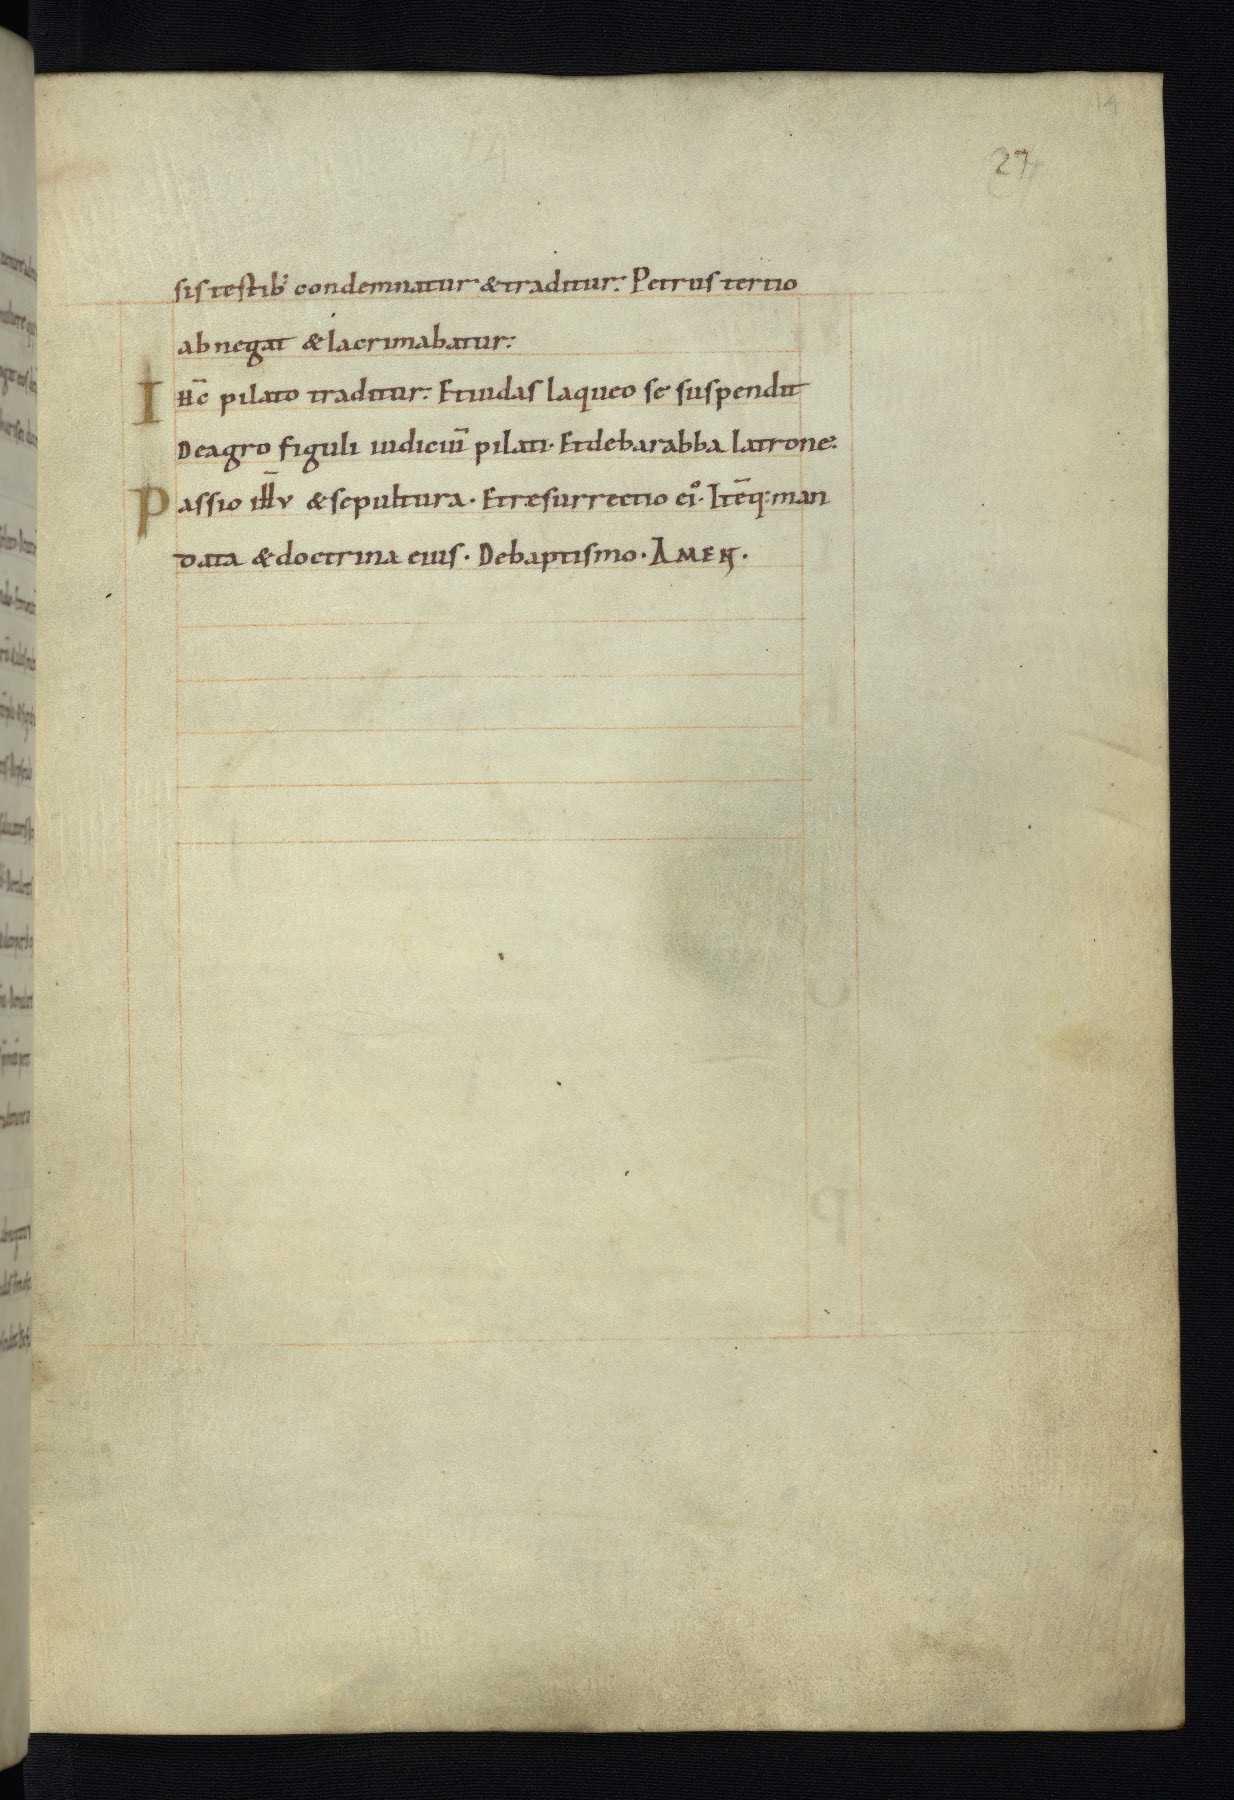 19
27
sis testib; condemnatur & traditur: Petrus tertio
abnegat & lacrimabatur:
IHC̅ pilato traditur: Et iudas laqueo se suspendit
De agro figuli iudiciu̅ pilati· Et de barabba latrone:
Passio & sepultura· Et resurrectio ei᾿· Ite̅q: man
data & doctrina eius· De baptismo· AMEN·